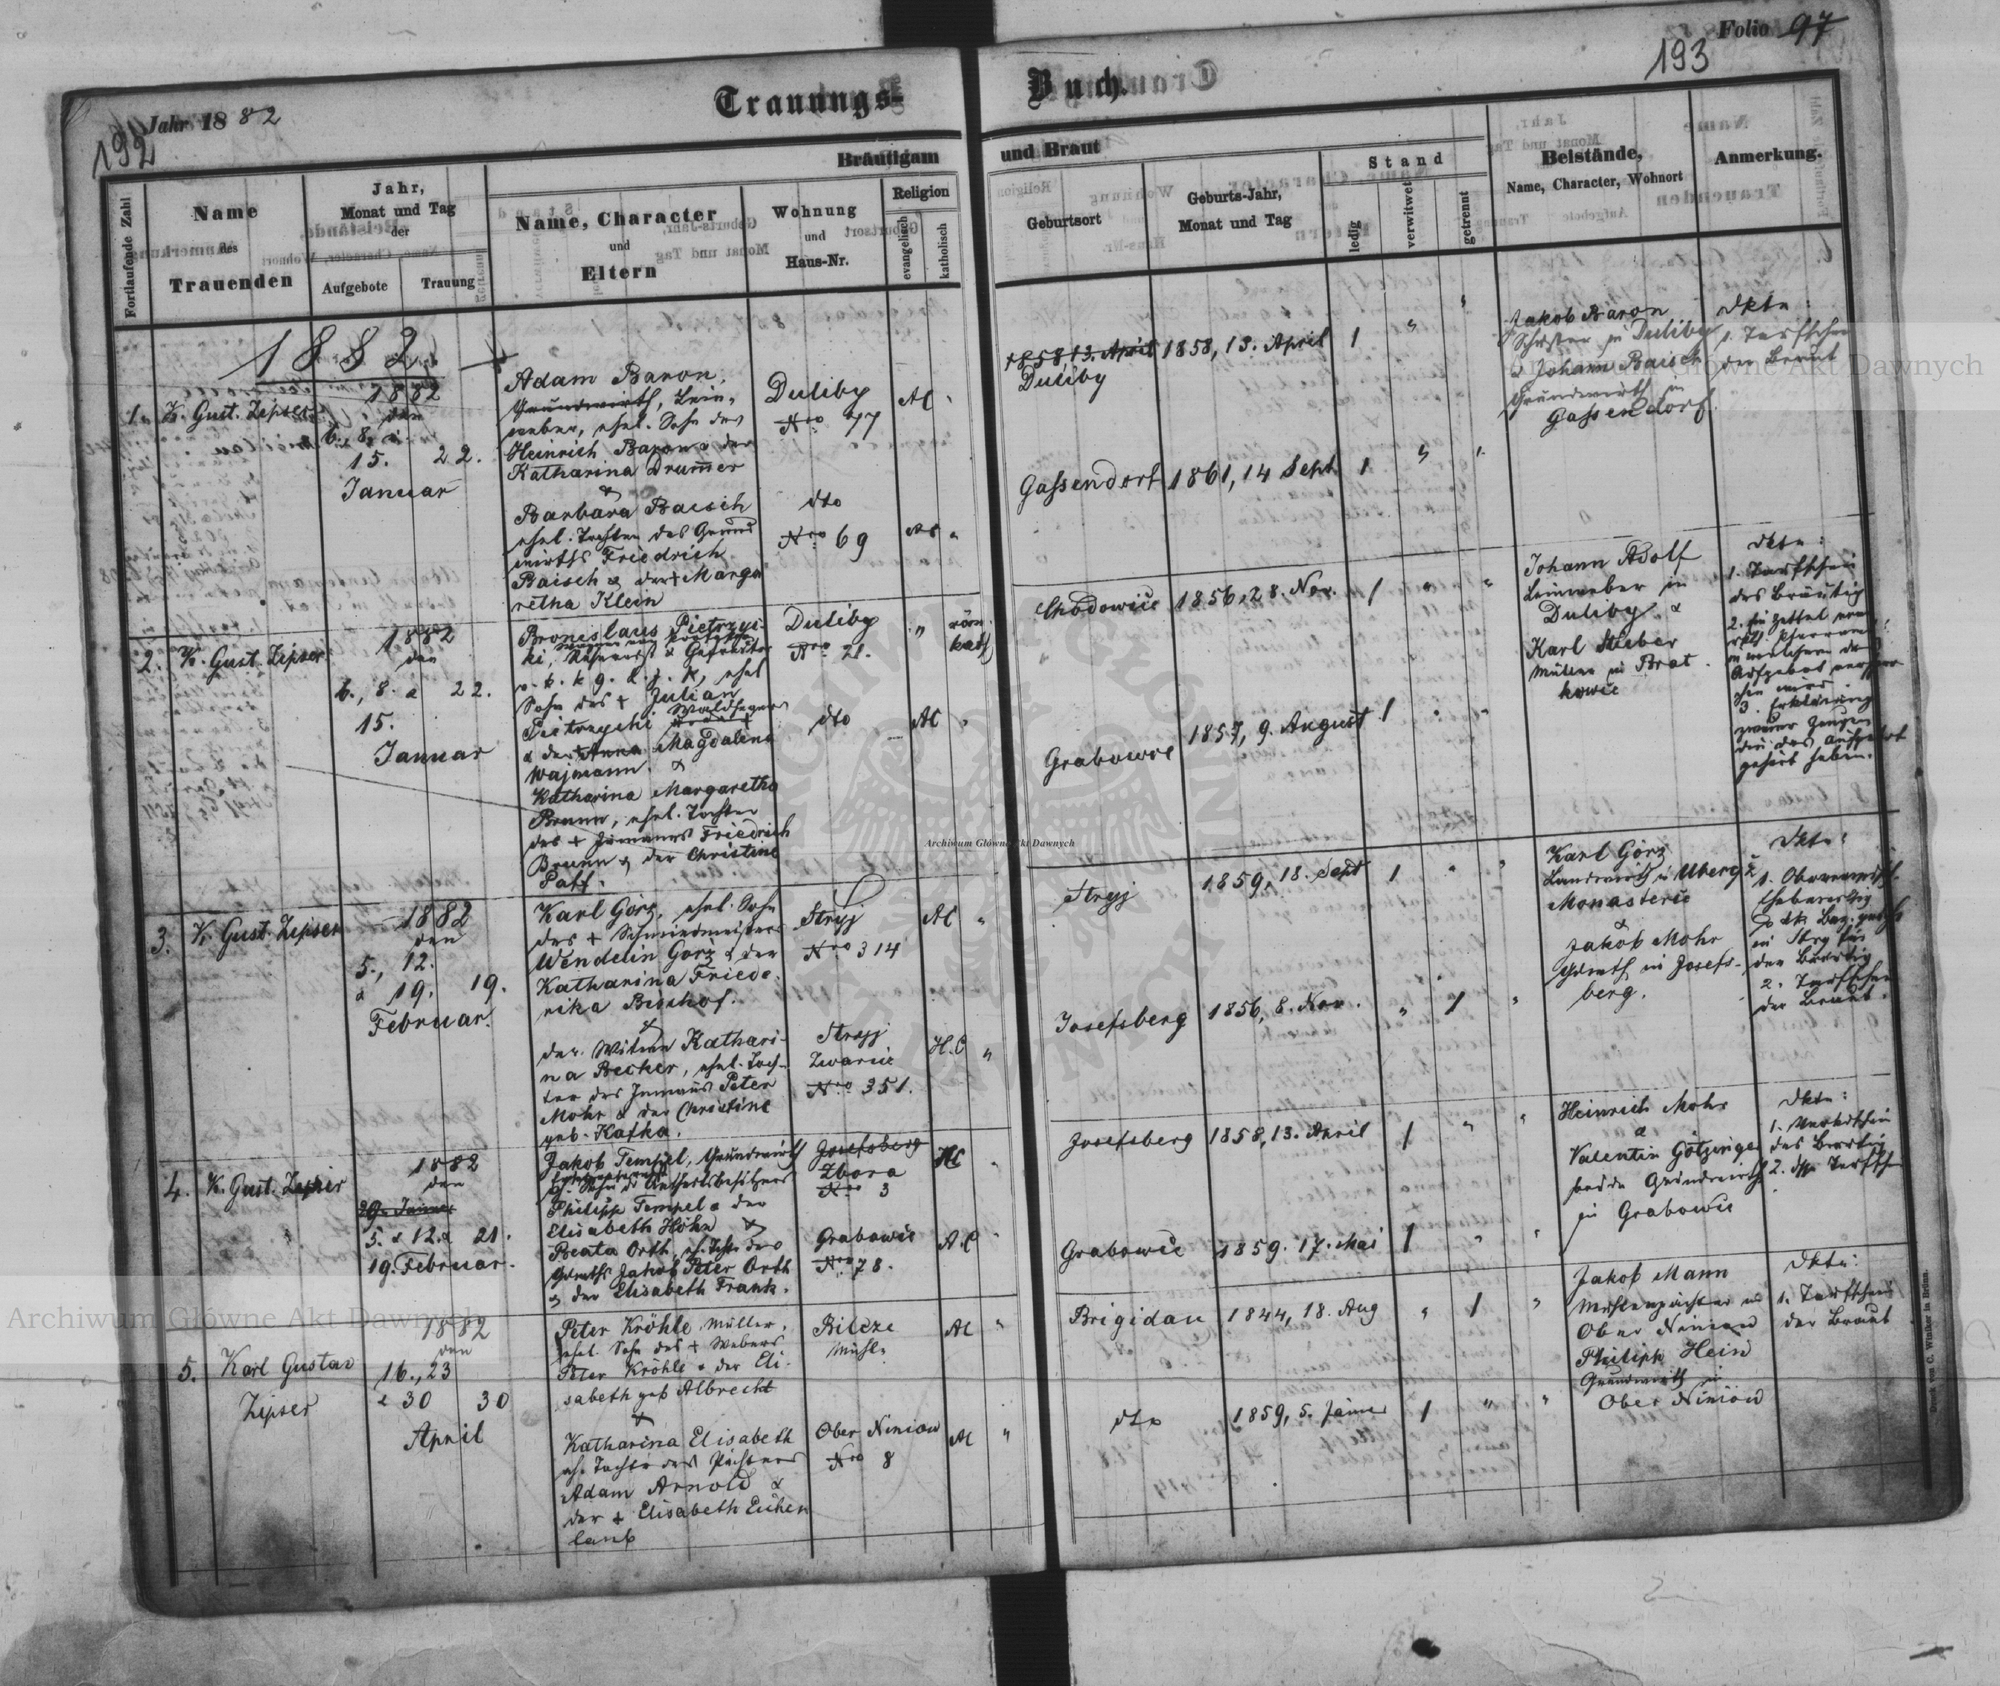 Folio 97
193
Trauungs-Buch.
Jahr 1882
192
Bräutigam und Braut
Fortlaufende Zahl
Name
des
Trauenden
Jahr,
Monat und Tag
der
Aufgebote
Trauung
Name, Character
und
Eltern
Wohnung
und
Haus-Nr.
Religion
evangelisch
katholisch
Geburtsort
Geburts-Jahr,
Monat und Tag
Stand
ledig
verwitwet
getrennt
Beistände,
Name, Character, Wohnort
Anmerkung.
1882
1. K. Gust. Zipser
1882
den
6., 8. &
15. 22.
Januar
Adam Baron,
Grundwirth, Lein-
weber, ehel. Sohn des
Heinrich Baron & der
Katharina Drum̄er
&
Barbara Baisch
ehel. Tochter des Grund
wirths Friedrich
Baisch & der + Marga
retha Klein
Duliby
Nro 77
AC
dto
Nro 69
AC
1858, 13. April
Duliby
1858, 13. April
1
Gassendorf
1861, 14 Sept
1
Jakob Baron
Schuster in Duliby
& Johann Baisch
Grundwirth in
Gassendorf.
Dktn:
1. Taufschein
der Braut
2. K. Gust. Zipser
1882
den
6., 8. & 22.
15.
Januar
Bronislaus Pietrzyc-
ki,
Sohn des + Julian
Pietrzycki Waldhegers
& der + Anna Magdalena
Wajmann. &
Katharina Margaretha
Brunn, ehel. Tochter
des + Inmanns Friedrich
Brunn & der Christine
Paff.
Duliby
Nro 21.
röm
kath
dto
AC
Chodowice
1856, 28. Nov.
1
Grabowce
1857, 9. August
1
Johann Adolf
Leinweber in
Duliby &
Karl Stieber
Müller in Brat
kowce
Dktn:
1. Taufschein
des Bräutig
3. Erklärung
zweier Zeugen
gehört haben.
3. K. Gust. Zipser
1882
den
5., 12.
& 19. 19.
Februar.
Karl Görz, ehel. Sohn
des + Schmiedmeisters
Wendelin Görz & der
Katharina Friede-
rika Bischof.
&
der Witwe Kathari-
na Becker, ehel. Toch-
ter des Inmanns Peter
Mohr & der Christine
geb. Kafka.
Stryj
Nro 314
AC
Stryj
Nro 351.
H.C
Stryj
1859, 18. Sept
1
Josefsberg
1856, 8. Nov.
1
Karl Görz
Landwirth in Ubergz
Monasterie
&
Jakob Mohr
Grdwirth in Josefs-
berg.
Dktn:
2. Taufschein
der Braut.
4. K. Gust. Zipser
1882
den
29. Jänner
5. & 12. & 21.
19. Februar.
Jakob Tempel, Grundwirth
Philipp Tempel & der
Elisabeth Höhn &
Beata Orth, eh. Tocht. des
Grdwirths Jakob Peter Orth
& der Elisabeth Frank.
Josefsberg
Zbora
Nro 3
HC
Grabowce
Nro 78.
A.C
Josefsberg
1858, 13. April
1
Grabowce
1859. 17. Mai
1
Heinrich Mohr
&
Valentin Götzinger
beide Grundwirthe
in Grabowce
Dktn:
5. Karl Gustav
Zipser
1882
den
16., 23
& 30 30
April
Peter Kröhle Müller,
ehel. Sohn des + Webers
Peter Kröhle & der Eli-
sabeth geb Albrecht
&
Katharina Elisabeth
eh. Tochter des Pächters
Adam Arnold &
der + Elisabeth Eichen
laub
Bilcze
Mühle
AC
Ober Niniow
Nro 8
AC
Brigidau
1844, 18. Aug
1
dto
1859, 5. Jänner
1
Jakob Mann
Mühlenpächter in
Ober Niniow
Philipp Hein
Grundwirth in
Ober Niniow
Dktn:
1. Taufschein
der Braut
Druck von C. Winiker in Brünn.
Archiwum Główne Akt Dawnych
Archiwum Główne Akt Dawnych
Archiwum Główne Akt Dawnych